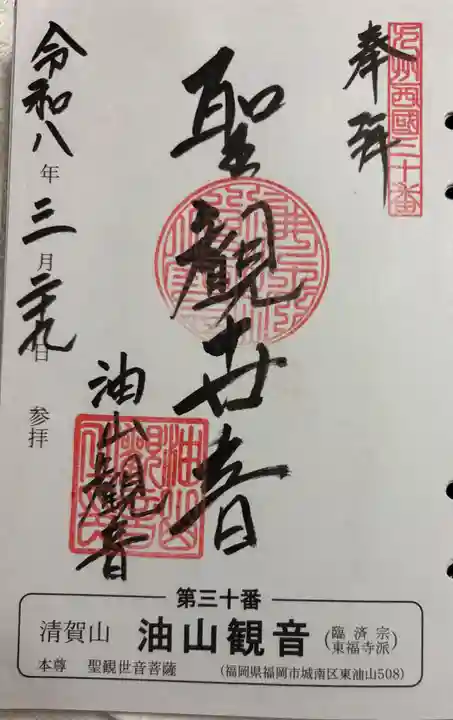 九州西國三十番
奉拜
聖觀世音
油山觀音
令和八年三月二十九日参拝
第三十番
清賀山 油山観音 (臨済宗 東福寺派)
本尊 聖観世音菩薩 (福岡県福岡市城南区東油山508)